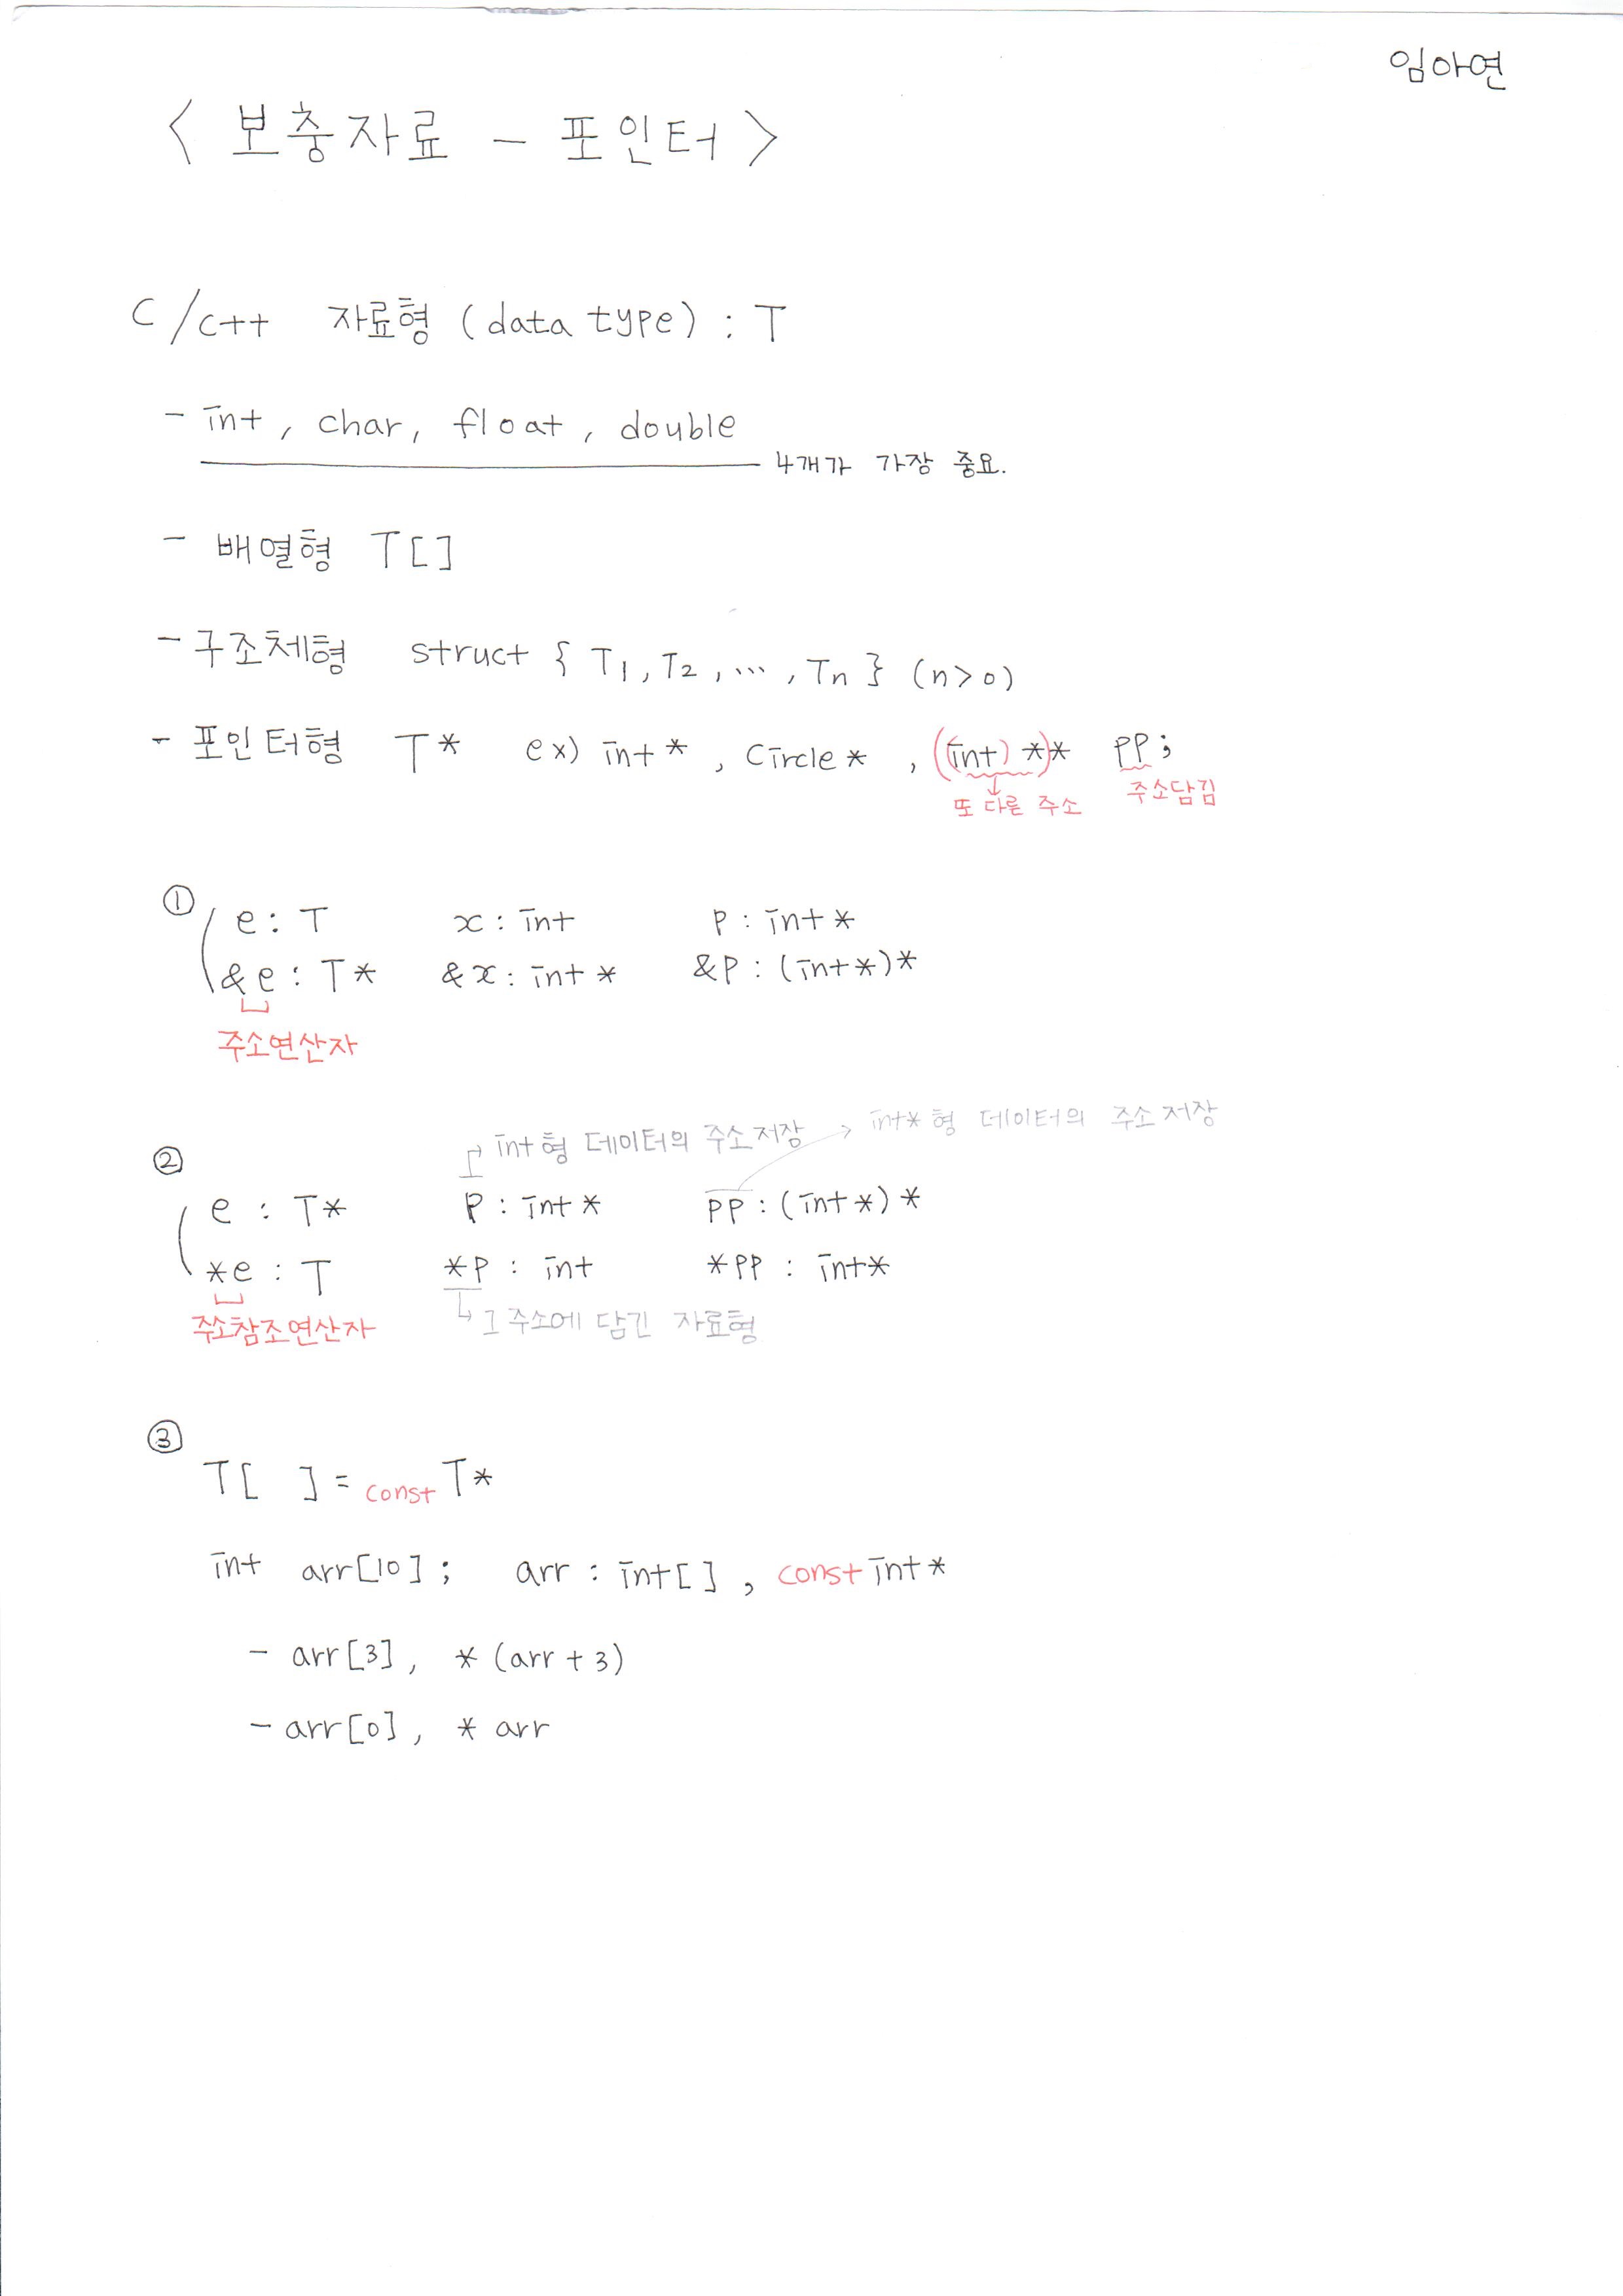 임아연
< 보충자료 - 포인터 >
C/C++ 자료형 (data type) : T
- int, char, float, double
4개가 가장 중요.
- 배열형 T[]
- 구조체형 struct { T1, T2, ..., Tn } (n>0)
- 포인터형 T* ex) int*, Circle*, ((int) *)* PP;
또 다른 주소 주소담김
①
e : T x : int P : int*
&e : T* &x : int* &P : (int*)*
주소연산자
int형 데이터의 주소저장 → int*형 데이터의 주소저장
②
e : T* P : int* PP : (int*)*
*e : T *P : int *PP : int*
주소참조연산자 그 주소에 담긴 자료형
③
T[ ] = const T*
int arr[10]; arr : int[], const int*
- arr[3], *(arr+3)
- arr[0], * arr